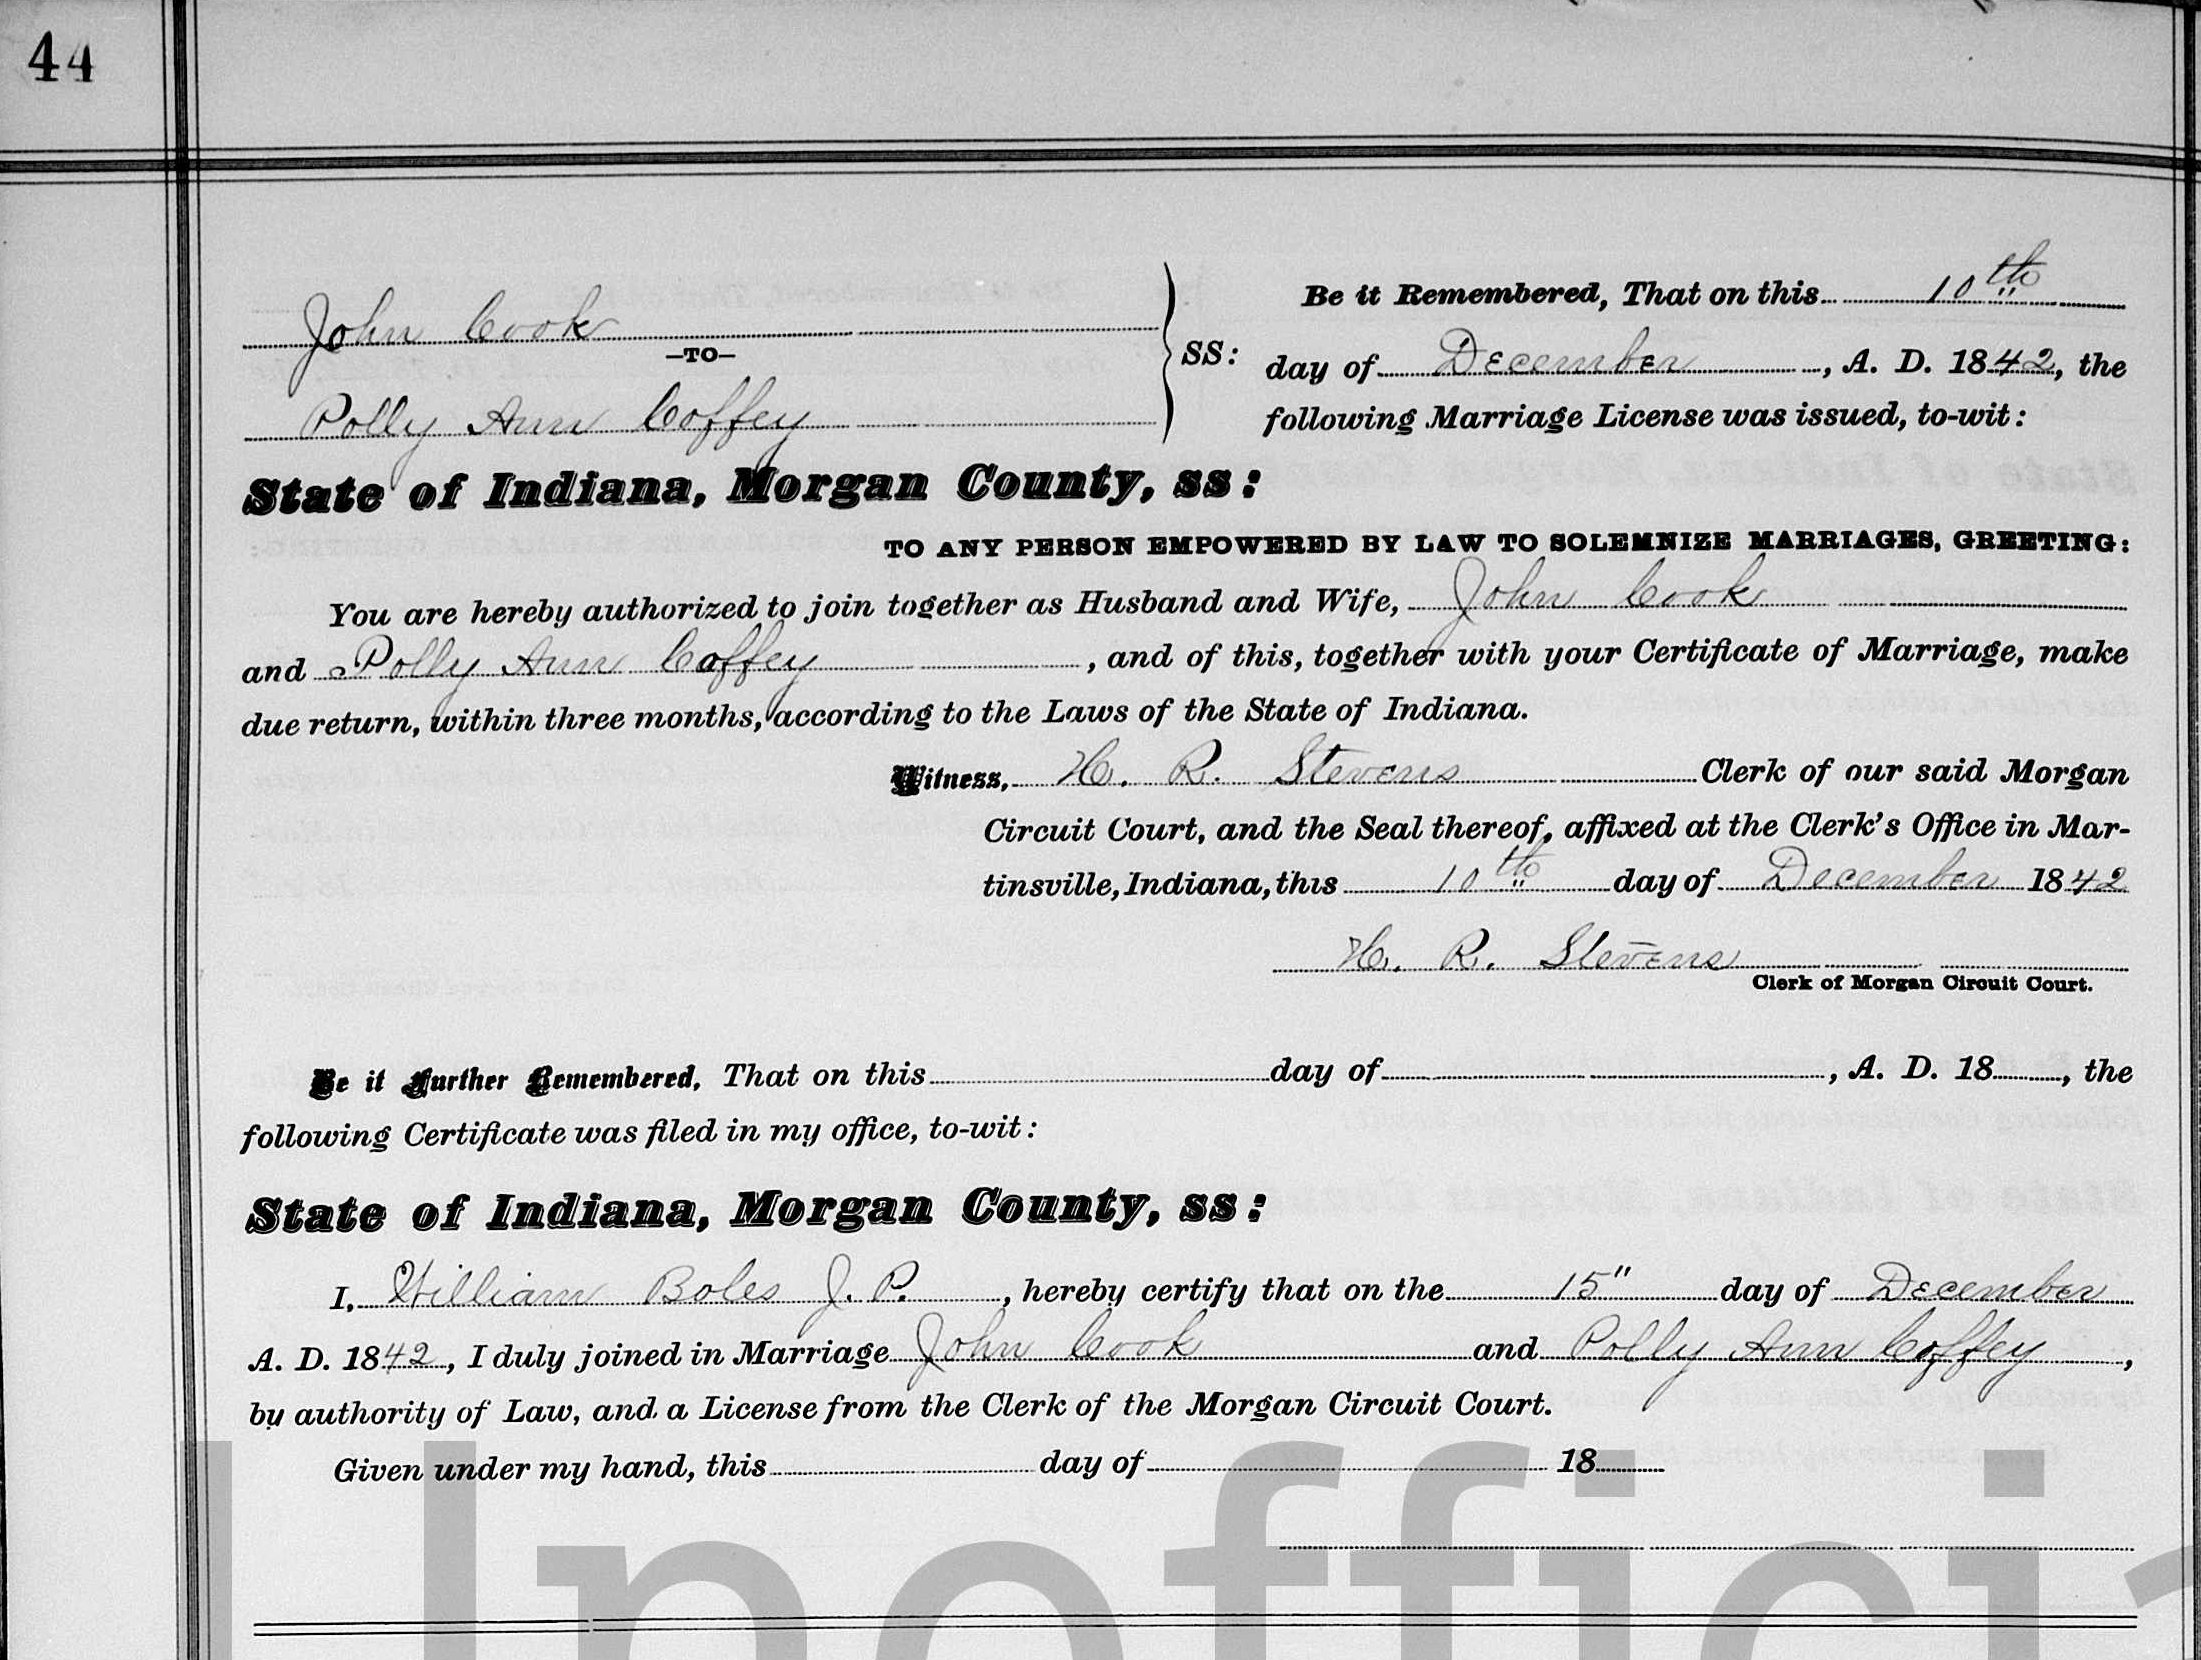 44
John Cook
—TO—
Polly Ann Coffey
SS:
Be it Remembered, That on this 10th
day of December, A. D. 1842, the
following Marriage License was issued, to-wit:
State of Indiana, Morgan County, ss:
TO ANY PERSON EMPOWERED BY LAW TO SOLEMNIZE MARRIAGES, GREETING:
You are hereby authorized to join together as Husband and Wife, John Cook
and Polly Ann Coffey, and of this, together with your Certificate of Marriage, make
due return, within three months, according to the Laws of the State of Indiana.
Witness, H. R. Stevens Clerk of our said Morgan
Circuit Court, and the Seal thereof, affixed at the Clerk's Office in Mar-
tinsville, Indiana, this 10th day of December 1842
H. R. Stevens
Clerk of Morgan Circuit Court.
Be it Further Remembered, That on this day of , A. D. 18 , the
following Certificate was filed in my office, to-wit:
State of Indiana, Morgan County, ss:
I, William Boles J. P., hereby certify that on the 15" day of December
A. D. 1842, I duly joined in Marriage John Cook and Polly Ann Coffey,
by authority of Law, and a License from the Clerk of the Morgan Circuit Court.
Given under my hand, this day of 18